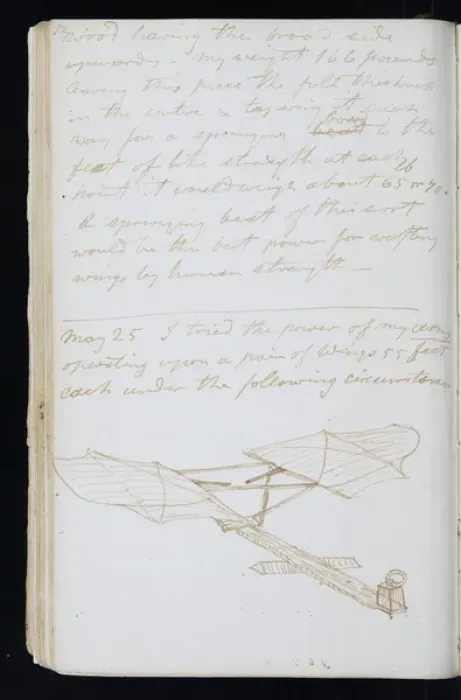 wood leaving the broad side
upwards - my weight 166 pounds
leaving this piece the full thickness
in the centre & tapering it each
way for a springing to the
feet of like strength at each
point it would weigh about 65 or 70
A springing beat of this sort
would be the best power for wafting
wings by human strength —
May 25 I tried the power of my arms
operating upon a pair of wings 55 feet
each under the following circumstances